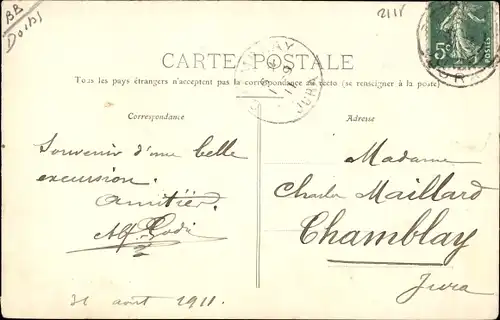 BB
Doubs
2118
5c
POSTES
CARTE POSTALE
Tous les pays étrangers n'acceptent pas la correspondance au recto (se renseigner à la poste)
JURA
JURA
Correspondance
Adresse
Souvenir d'une belle
excursion.
Amitiés.
Alf.
31 août 1911.
Madame
Charles Maillard
Chamblay
Jura